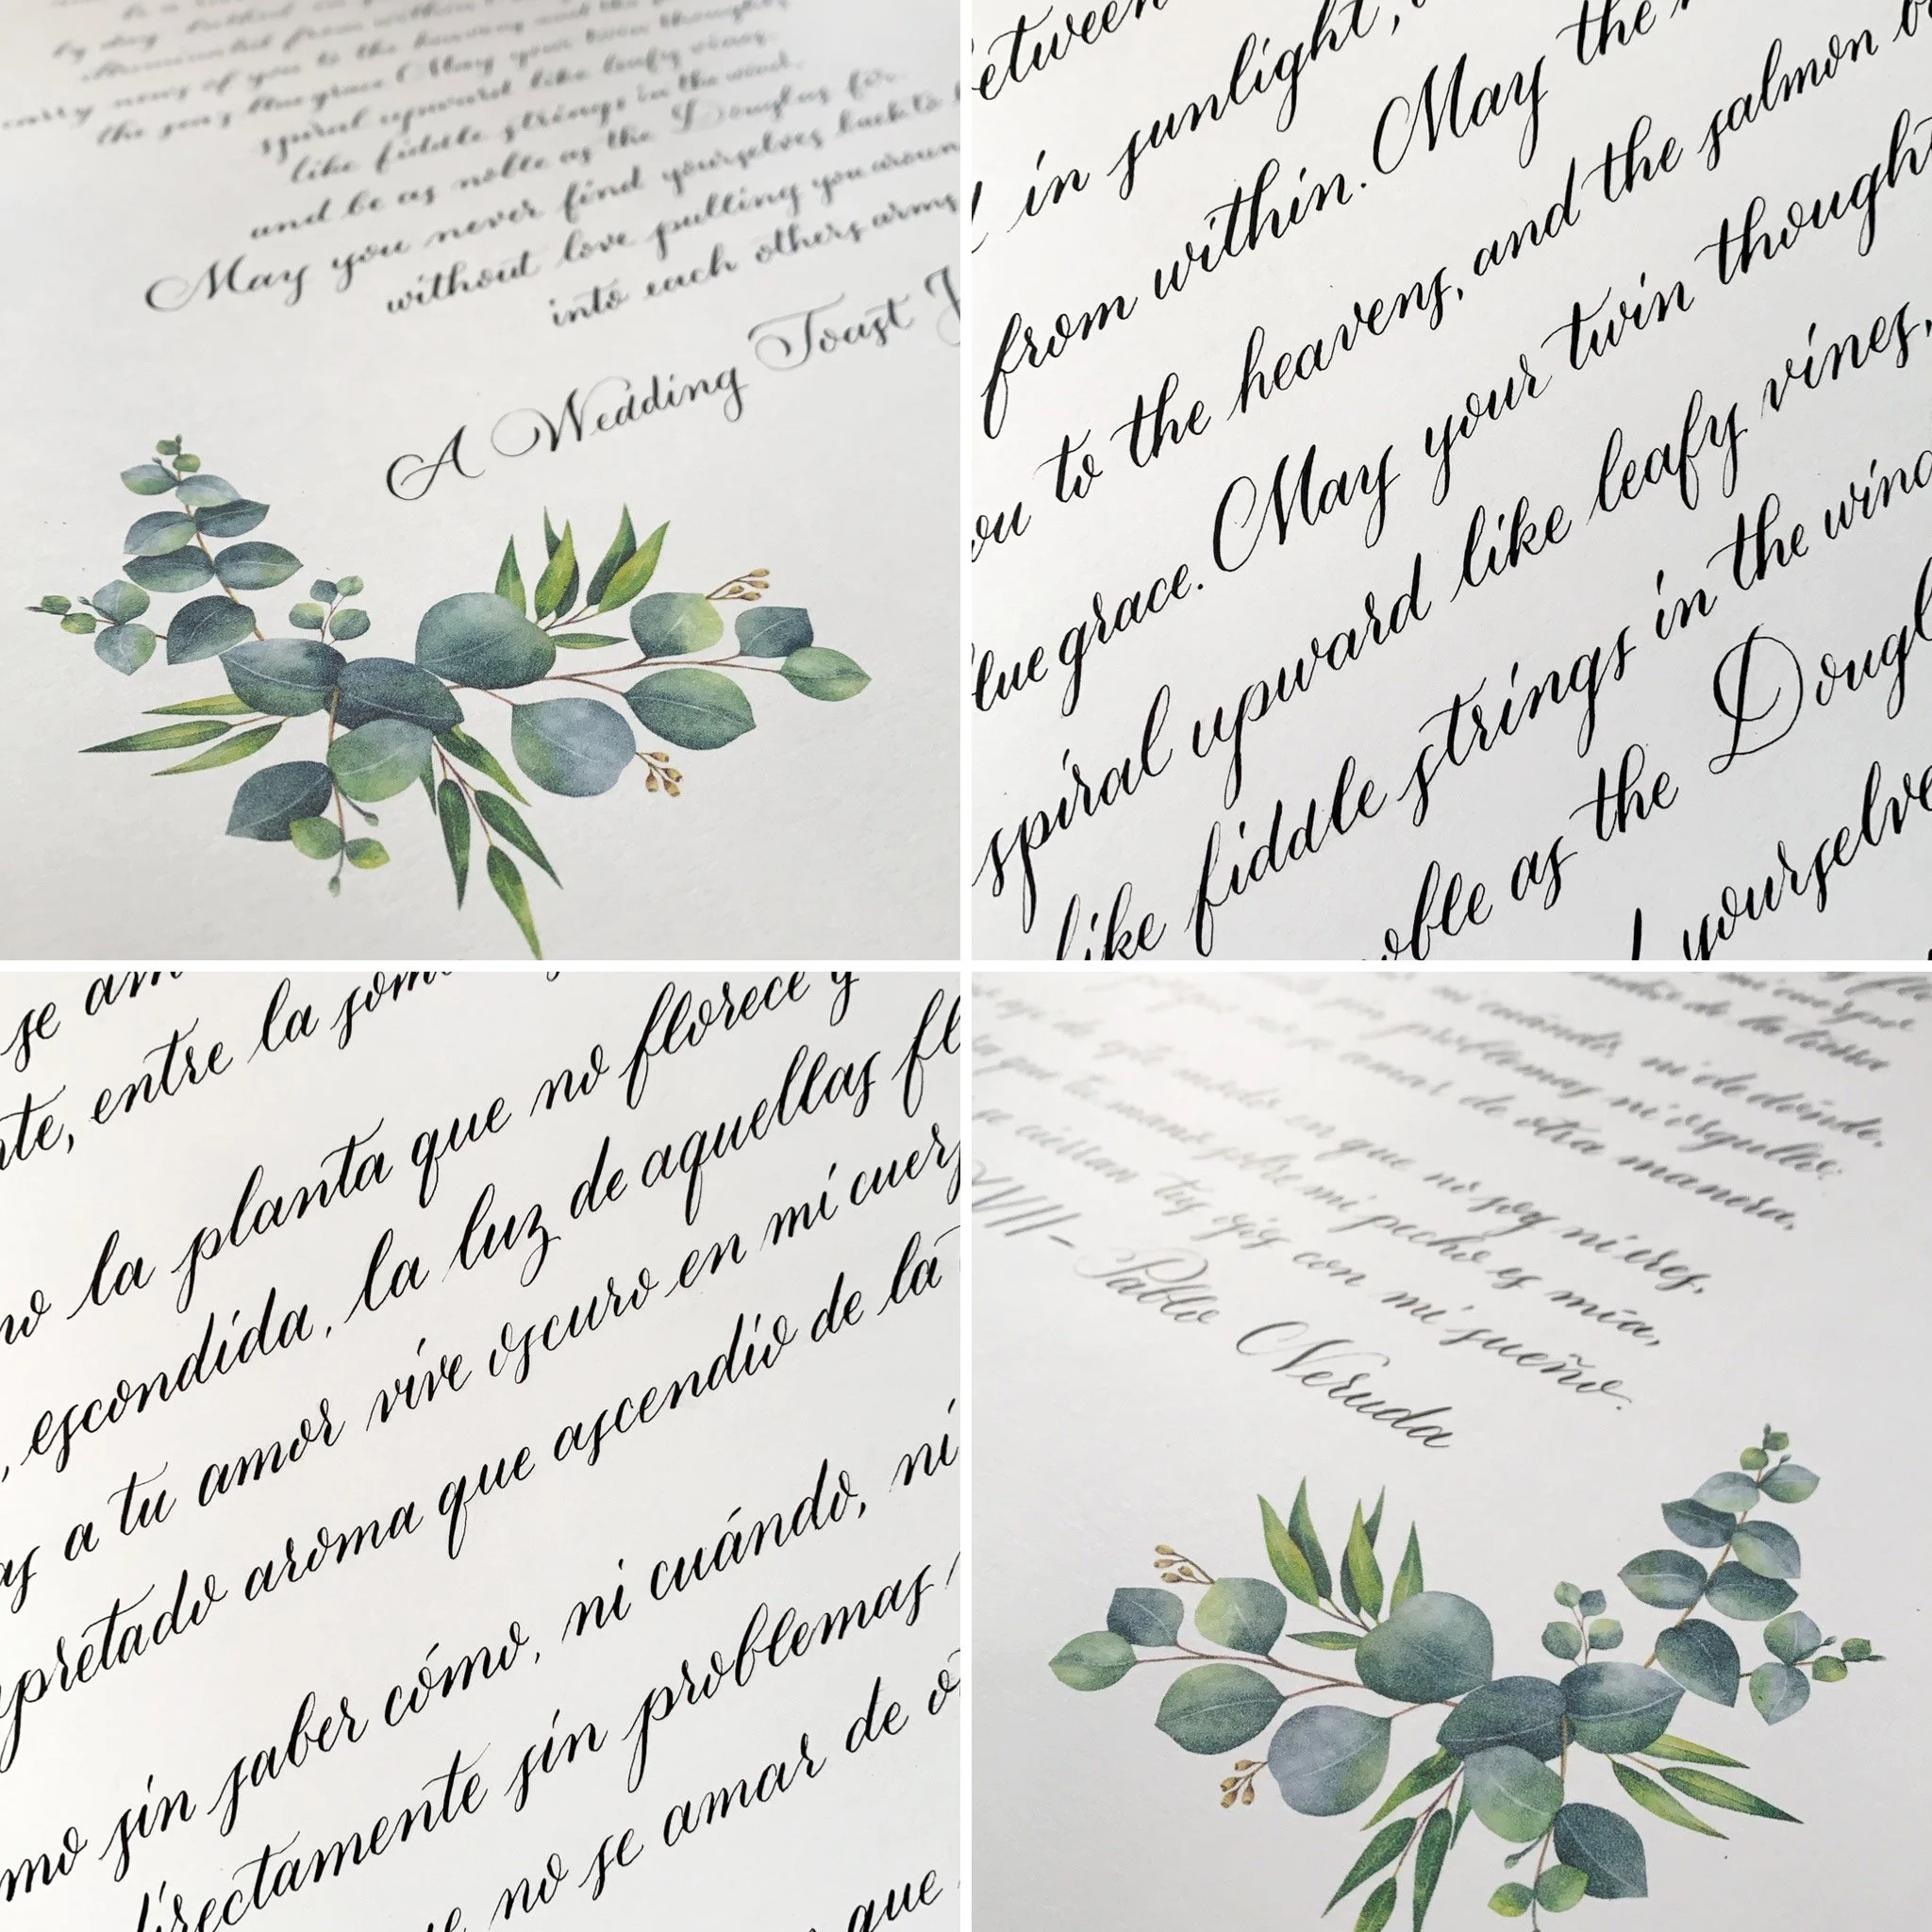 by day,
illuminated from within. May the
carry news of you to the heavens, and the
the sea, blue grace. May your twin thoughts
spiral upward like leafy vines,
like fiddle strings in the wind,
and be as noble as the Douglas fir.
May you never find yourselves back to
without love pulling you aroun
into each others arms
A Wedding Toast J
etween
in sunlight,
from within. May the
ou to the heavens, and the salmon b
lue grace. May your twin thought
spiral upward like leafy vines,
like fiddle strings in the wind
oble as the Dougl
yourselve
se am
nte, entre la som
mo la planta que no florece y
, escondida, la luz de aquellas fl
as a tu amor vive oscuro en mi cuerp
apretado aroma que ascendió de la
mo sin saber cómo, ni cuándo, ni
directamente sin problemas
ue no se amar de o
que
mi cuerpo
de la tierra
cuándo, ni de dónde,
sin problemas ni orgullo:
porque no se amar de otra manera,
sino así de este modo en que no soy ni eres,
que tu mano sobre mi pecho es mía,
se cierran tus ojos con mi sueño.
XVII – Pablo Neruda